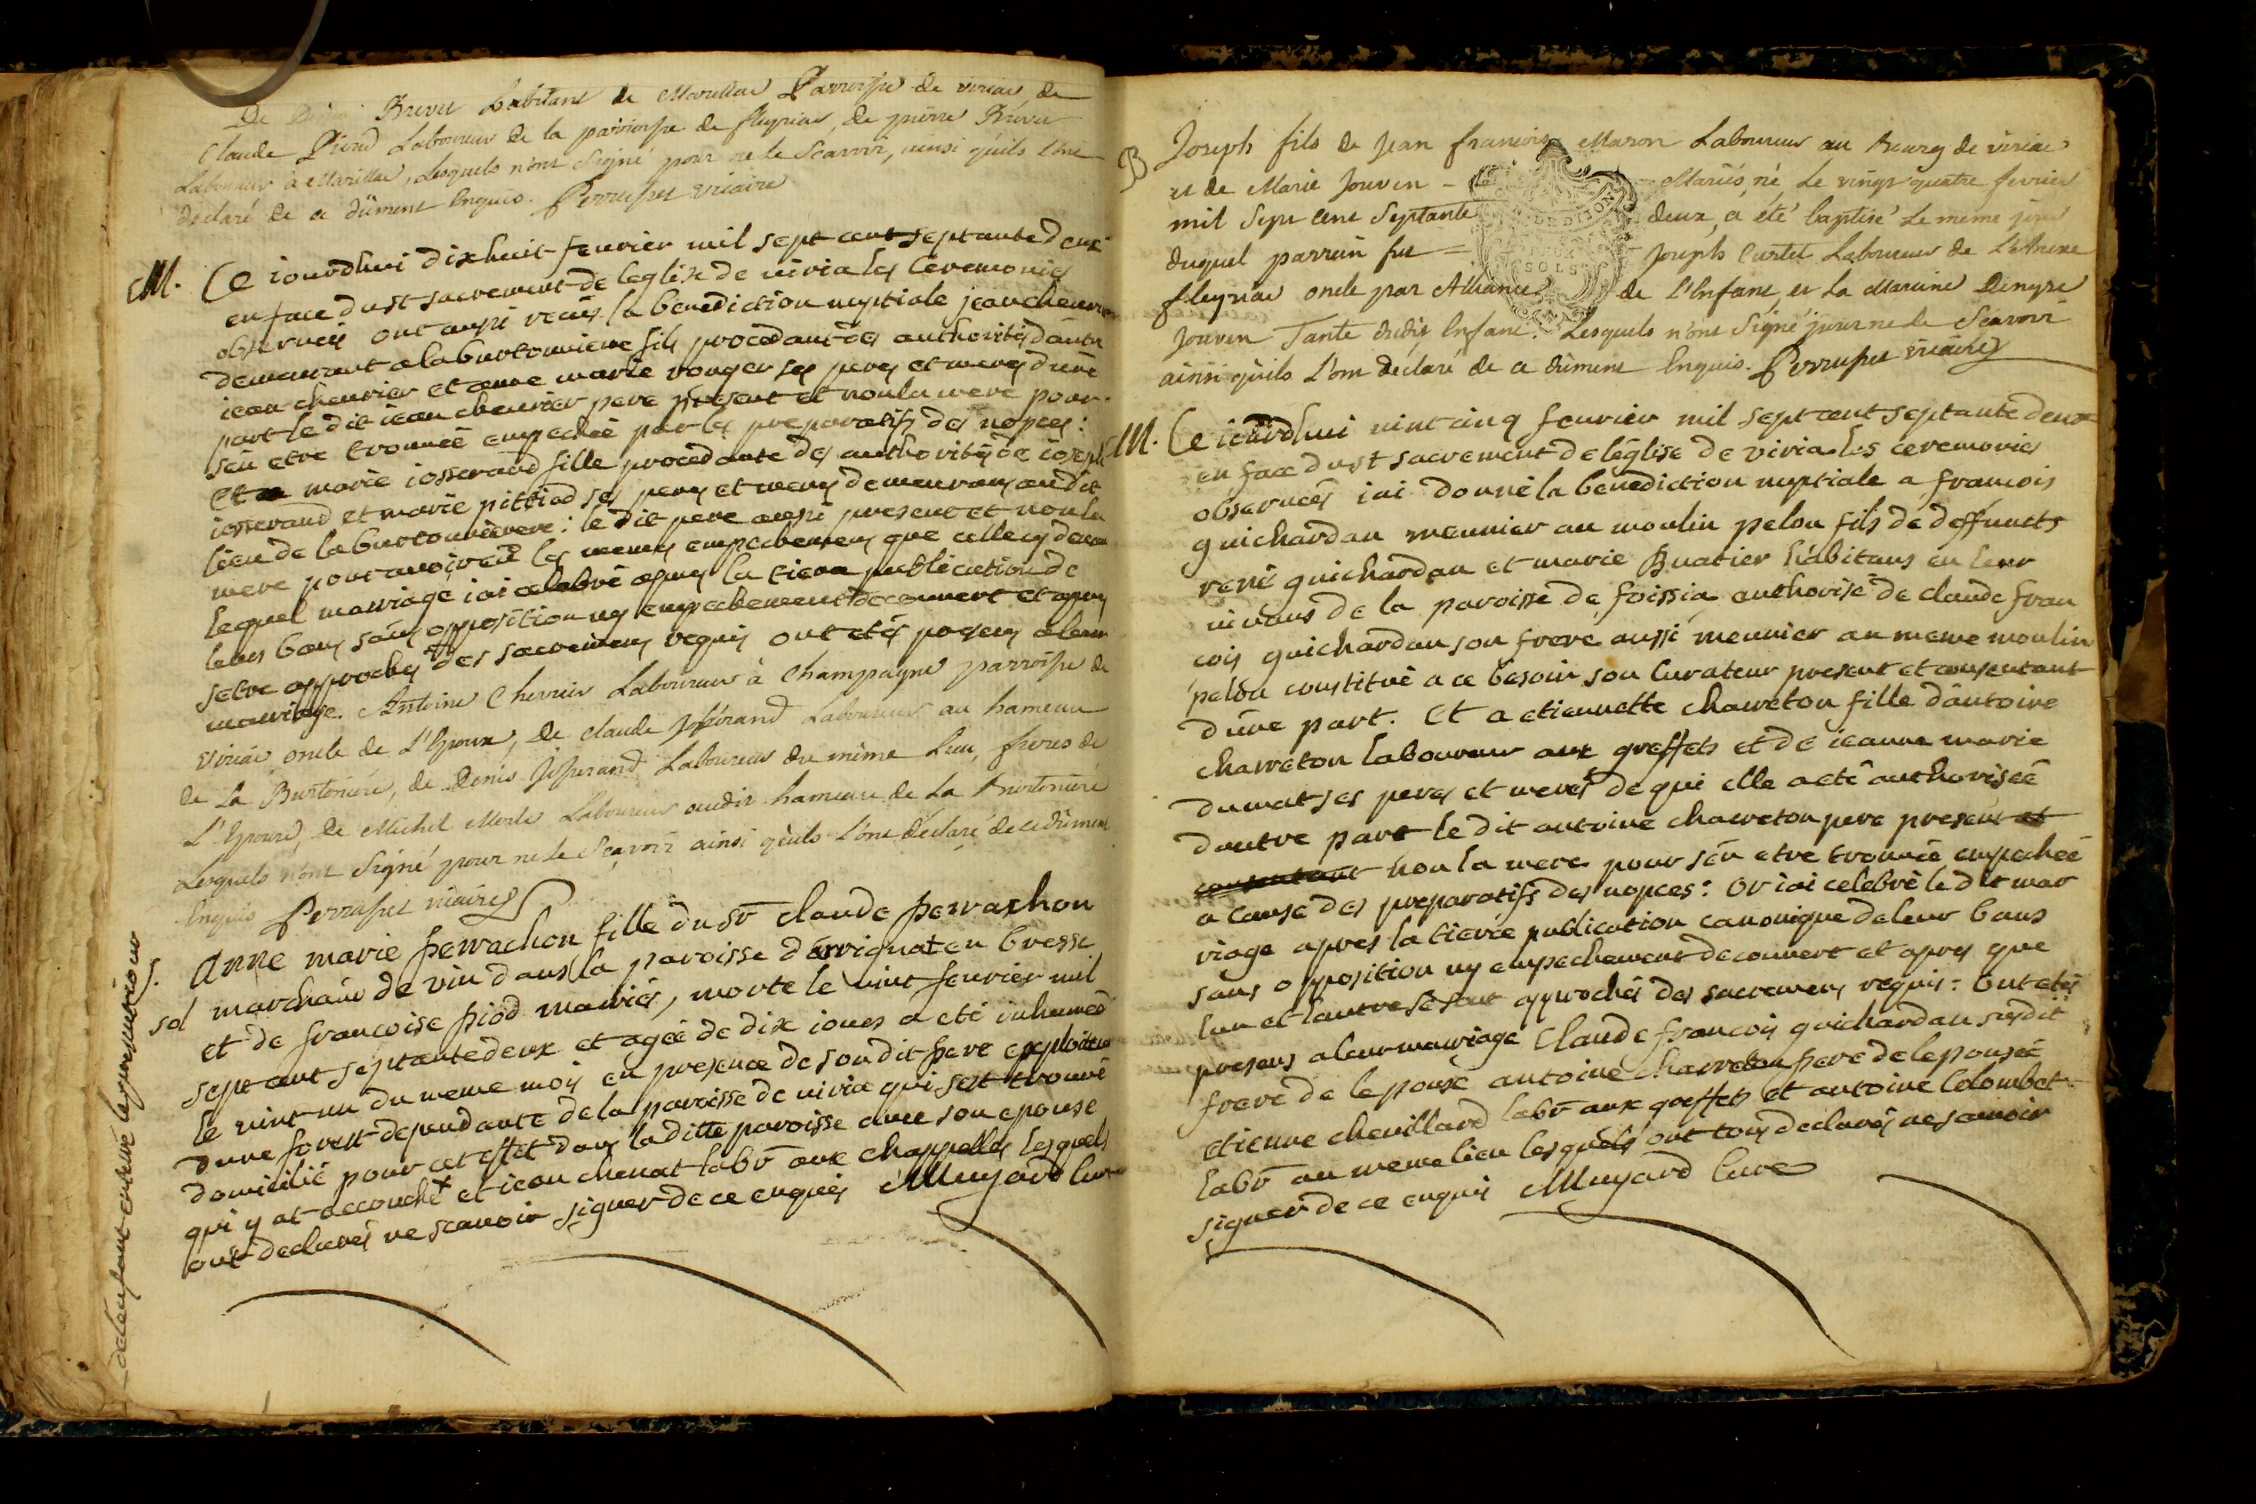 De Brevet habitant de Marillac Parroisse de viriac, de
Claude Piroud Laboureur de la parroisse de fleyriac, de pierre Brevet
Laboureur à Marillac, Lesquels n'ont Signé pour ne le Scavoir, ainsi qu'ils L'ont
déclaré de ce dûment Enquis. Perruset vicaire
M. Ce iourdhui dixhuit feuvrier mil sept cent septante deux
en face du st sacrement de leglise de viria les ceremonies
observeés ont aussi receus la benediction nuptiale jean cheuvrier
demeurant a la burtonniere fils procedant des authorités dautre
iean cheuvrier et anne marie rouger ses peres et meres d'une
part le dit iean cheuvrier pere present et non la mere pour
s'en etre trouvée empecheé par les preparatifs des nopces :
Et marie iosserand fille procedante des authorités de ioseph
iosserand et marie pittiod ses peres et meres demeurans au dit
lieu de la burtonniere : le dit pere aussi present et non la
mere pour avoir eu les memes empechemens que celle cy dessus
lequel marriage iai celebré apres la tierce publication de
leurs bans sans opposition ny empechement decouvert et apres
setre approchés des sacremens requis ont etés presens a leur
marriage. Antoine Chevrier Laboureur à Champagne parroisse de
Viriac oncle de L'Epoux, de claude Josserand Laboureur au hameau
de La Burtoniere, de Denis Josserand Laboureur du même Lieu, freres de
L'Epouse, de Michel Morle Laboureur audit hameau de La Burtoniere
Lesquels n'ont Signé pour ne le Sçavoir ainsi qu'ils L'ont déclaré de ce dûment
Enquis Perruset vicaire
S. Anne marie perrachon fille du sr claude perrachon
sd marchand de vin dans la paroisse d'arrignat en bresse
et de francoise piod mariés, morte le vint feuvrier mil
sept cent septante deux et ageé de dix iours a eté inhumeé
le vint un du meme mois en presence de son dit pere exploiteur
d'une forest dependante de la paroisse de viria qui sest trouvé
domicilié pour cet effet dans la ditte paroisse avec son epouse
qui y at accouché x et iean chenat labr aux chappelles lesquels
ont declarés ne scavoir signer de ce enquis Muyard Curé
de lenfant
B Joseph fils de Jean francois Maron Laboureur au Bourg de viriac
et de Marie Jouven - Mariés, né Le vingt quatre fevrier
mil Sept cent Septante deux, a été baptisé Le même jour
duquel parrein fut = Joseph Curtet Laboureur de L'Anexe
fleyriac oncle par Alliance de L'Enfant, et La Maraine Denyse
Jouven Tante dudit Enfant. Lesquels n'ont Signé pour ne le Scavoir
ainsi qu'ils L'ont déclaré de ce dûment Enquis. Perruset vicaire
M. Ce iourdhui vint cinq feuvrier mil sept cent septante deux
en face du st sacrement de léglise de viria les ceremonies
observeés iai donné la benediction nuptiale a francois
guichardan meunier au moulin pelou fils de deffuncts
rené guichardan et marie Buatier habitans en leur
vivans de la paroisse de foissia authorisé de claude fran
cois guichardan son frere aussi meunier au meme moulin
pelou constitué a ce besoin son curateur present et consentant
d'une part. Et a etiennette charreton fille dantoine
charreton laboureur aux greffets et de ieanne marie
dumat ses peres et meres de qui elle a eté authoriseé
dautre part le dit antoine charreton pere present et
consentant non la mere pour s'en etre trouvée empecheé
a cause des preparatifs des nopces : Or iai celebré le dit mar
riage apres la tierce publication canonique de leur bans
sans opposition ny empechement decouvert et apres que
lun et lautre se sont approchés des sacremens requis : Ont etés
presens a leur marriage Claude francois guichardan susdit
frere de lepoux antoine charreton pere de lepouseé
etienne chevillard labr aux greffets et antoine Colombet
labr au meme lieu lesquels ont tous declarés ne scavoir
signer de ce enquis Muyard Curé